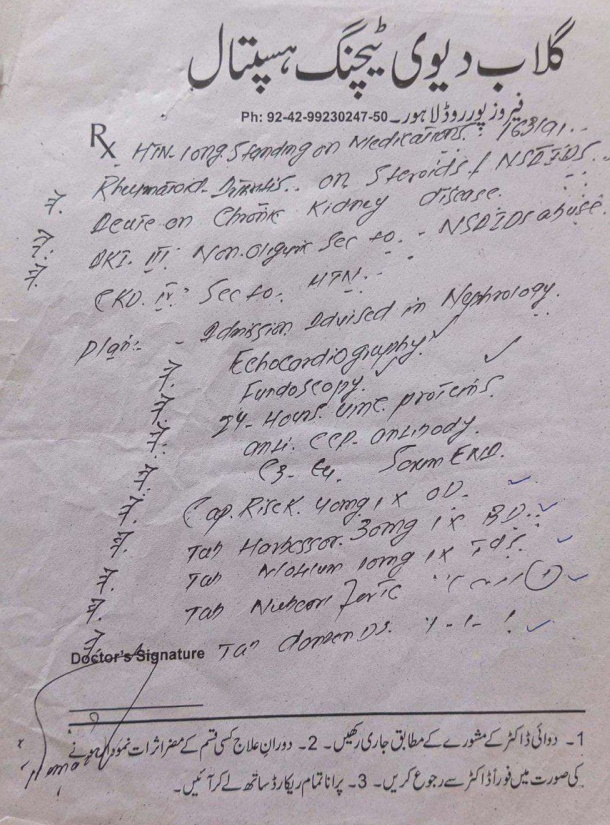 گلاب دیوی ٹیچنگ ہسپتال
فیروز پور روڈ لاہور۔
Ph: 92-42-99230247-50
Rx HTN. long. Standing on Medications.
Rheumatoid on Steroids / NSAIDS.
Acute on Chronic Kidney disease.
AKI. III. Non. Oliguric Sec to. - NSAIDs abuse.
CKD. IV. Sec to. HTN.
Plan: - Admission Advised in Nephrology.
Echocardiography.
Fundoscopy.
24- Hours. urine proteins.
anti. CCP. antibody.
C3- C4. Serum
Cap. Risek. 40mg 1 X OD.
Tab 30mg 1 X BD.
Tab 10mg 1 X TDS.
Tab
Tab DS. 1-1-1
Doctor's Signature
1۔ دوائی ڈاکٹر کے مشورے کے مطابق جاری رکھیں۔ 2۔ دورانِ علاج کسی قسم کے مضر اثرات نمودار ہونے
کی صورت میں فوراً ڈاکٹر سے رجوع کریں۔ 3۔ پرانا تمام ریکارڈ ساتھ لے کر آئیں۔